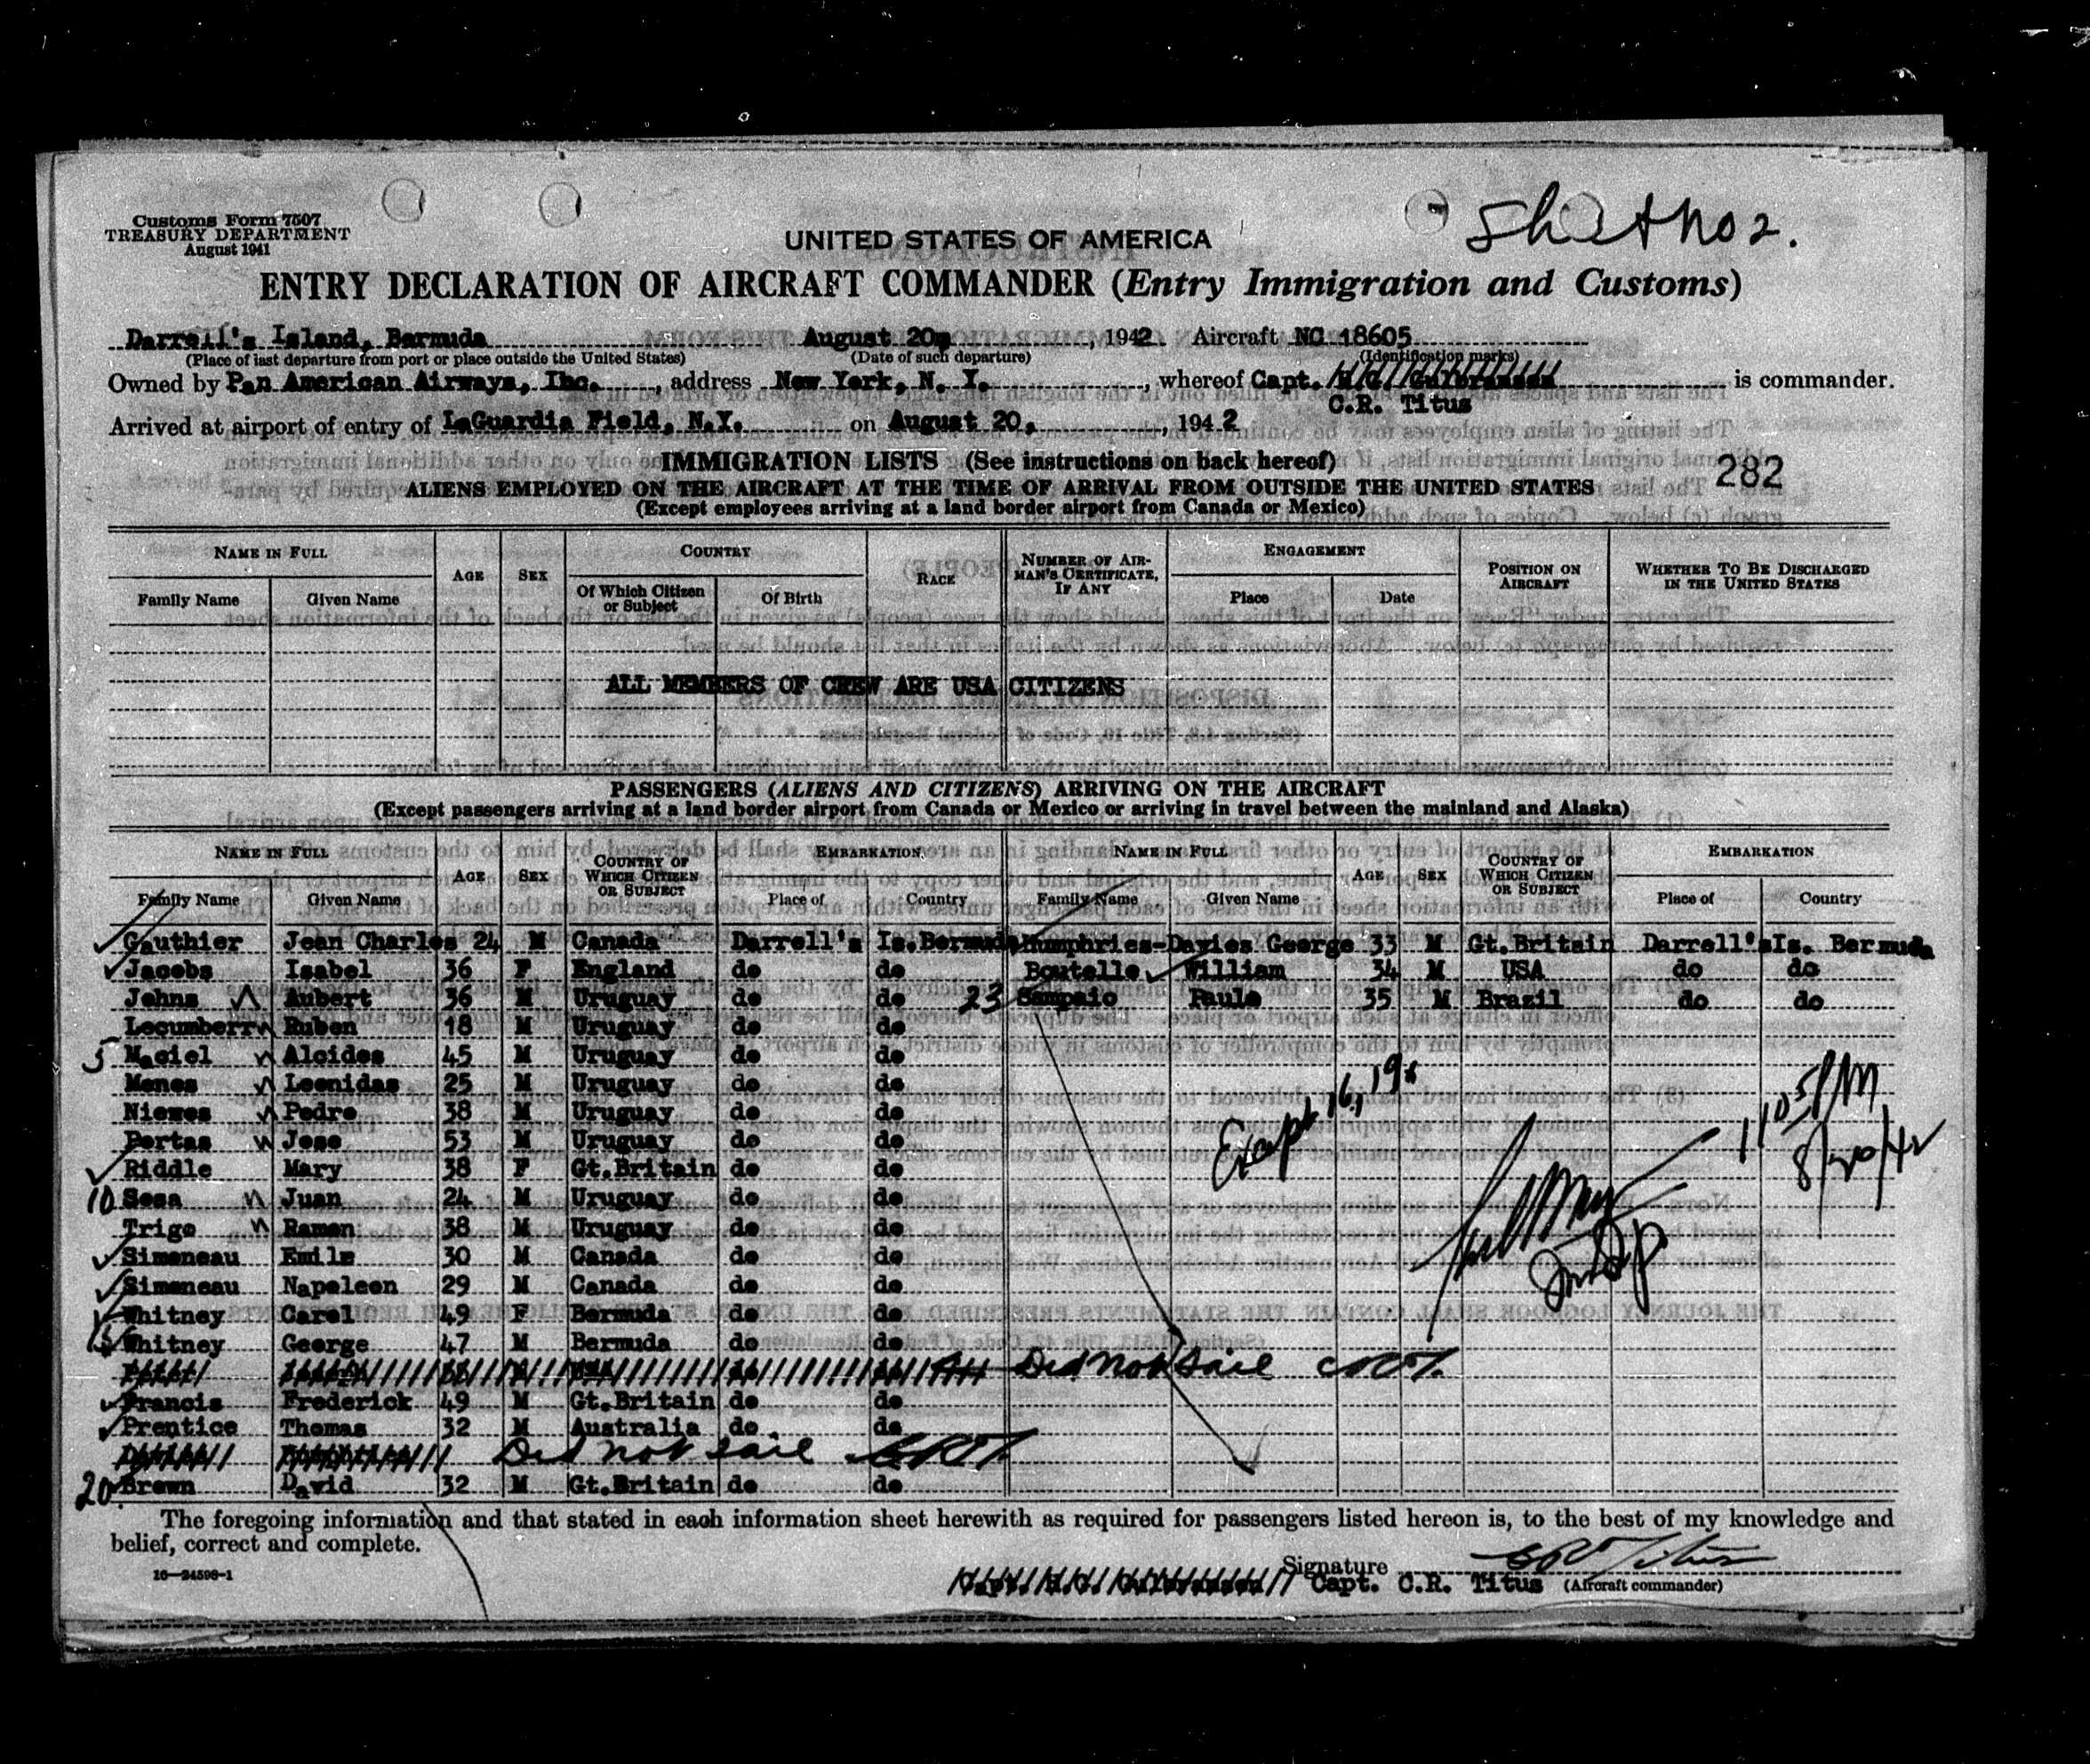 Customs Form 7507
TREASURY DEPARTMENT
August 1941
UNITED STATES OF AMERICA
ENTRY DECLARATION OF AIRCRAFT COMMANDER (Entry Immigration and Customs)
Darrell's Island, Bermuda August 20, 1942 Aircraft NC 18605
(Place of last departure from port or place outside the United States) (Date of such departure) (Identification marks)
Owned by Pan American Airways, Inc., address New York, N. Y., whereof Capt. is commander.
C.R. Titus
Arrived at airport of entry of LaGuardia Field, N.Y. on August 20, 1942
IMMIGRATION LISTS (See instructions on back hereof)
282
ALIENS EMPLOYED ON THE AIRCRAFT AT THE TIME OF ARRIVAL FROM OUTSIDE THE UNITED STATES
(Except employees arriving at a land border airport from Canada or Mexico)
NAME IN FULL AGE SEX COUNTRY RACE NUMBER OF AIRMAN'S CERTIFICATE, IF ANY ENGAGEMENT POSITION ON AIRCRAFT WHETHER TO BE DISCHARGED IN THE UNITED STATES
Family Name Given Name Of Which Citizen or Subject Of Birth Place Date
ALL MEMBERS OF CREW ARE USA CITIZENS
PASSENGERS (ALIENS AND CITIZENS) ARRIVING ON THE AIRCRAFT
(Except passengers arriving at a land border airport from Canada or Mexico or arriving in travel between the mainland and Alaska)
NAME IN FULL AGE SEX COUNTRY OF WHICH CITIZEN OR SUBJECT EMBARKATION NAME IN FULL AGE SEX COUNTRY OF WHICH CITIZEN OR SUBJECT EMBARKATION
Family Name Given Name Place of Country Family Name Given Name Place of Country
Gauthier Jean Charles 24 M Canada Darrell's Is. Bermuda Humphries-Davies George 33 M Gt.Britain Darrell's Is. Bermuda
Jacobs Isabel 36 F England do do Boutelle William 34 M USA do do
Johns Aubert 36 M Uruguay do do 23 Sampaio Paulo 35 M Brazil do do
Lecumberry Ruben 18 M Uruguay do do
5 Maciel Alcides 45 M Uruguay do do
Menes Leonidas 25 M Uruguay do do
Niewes Pedro 38 M Uruguay do do
Portas Jose 53 M Uruguay do do
Riddle Mary 38 F Gt.Britain do do
10 Sosa Juan 24 M Uruguay do do
Trigo Ramon 38 M Uruguay do do
Simoneau Emile 30 M Canada do do
Simoneau Napoleon 29 M Canada do do
Whitney Carol 49 F Bermuda do do
15 Whitney George 47 M Bermuda do do
Did not sail CRT.
Francis Frederick 49 M Gt.Britain do do
Prentice Thomas 32 M Australia do do
Did not sail CRT.
20 Brown David 32 M Gt.Britain do do
1105 PM
8/20/42
The foregoing information and that stated in each information sheet herewith as required for passengers listed hereon is, to the best of my knowledge and
belief, correct and complete.
Signature CR Titus
16—24598-1 Capt. C.R. Titus (Aircraft commander)